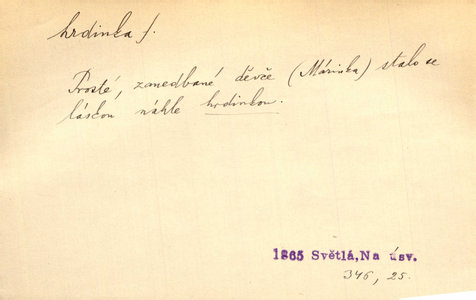 hrdinka f.
Prosté, zanedbané děvče (Márinka) stalo se
láskou náhle hrdinkou.
1865 Světlá,Na úsv.
346, 25.